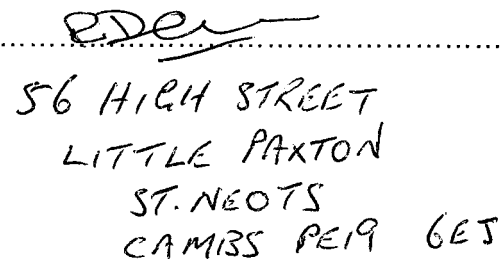 56 HIGH STREET
LITTLE PAXTON
ST. NEOTS
CAMBS PE19 6EJ